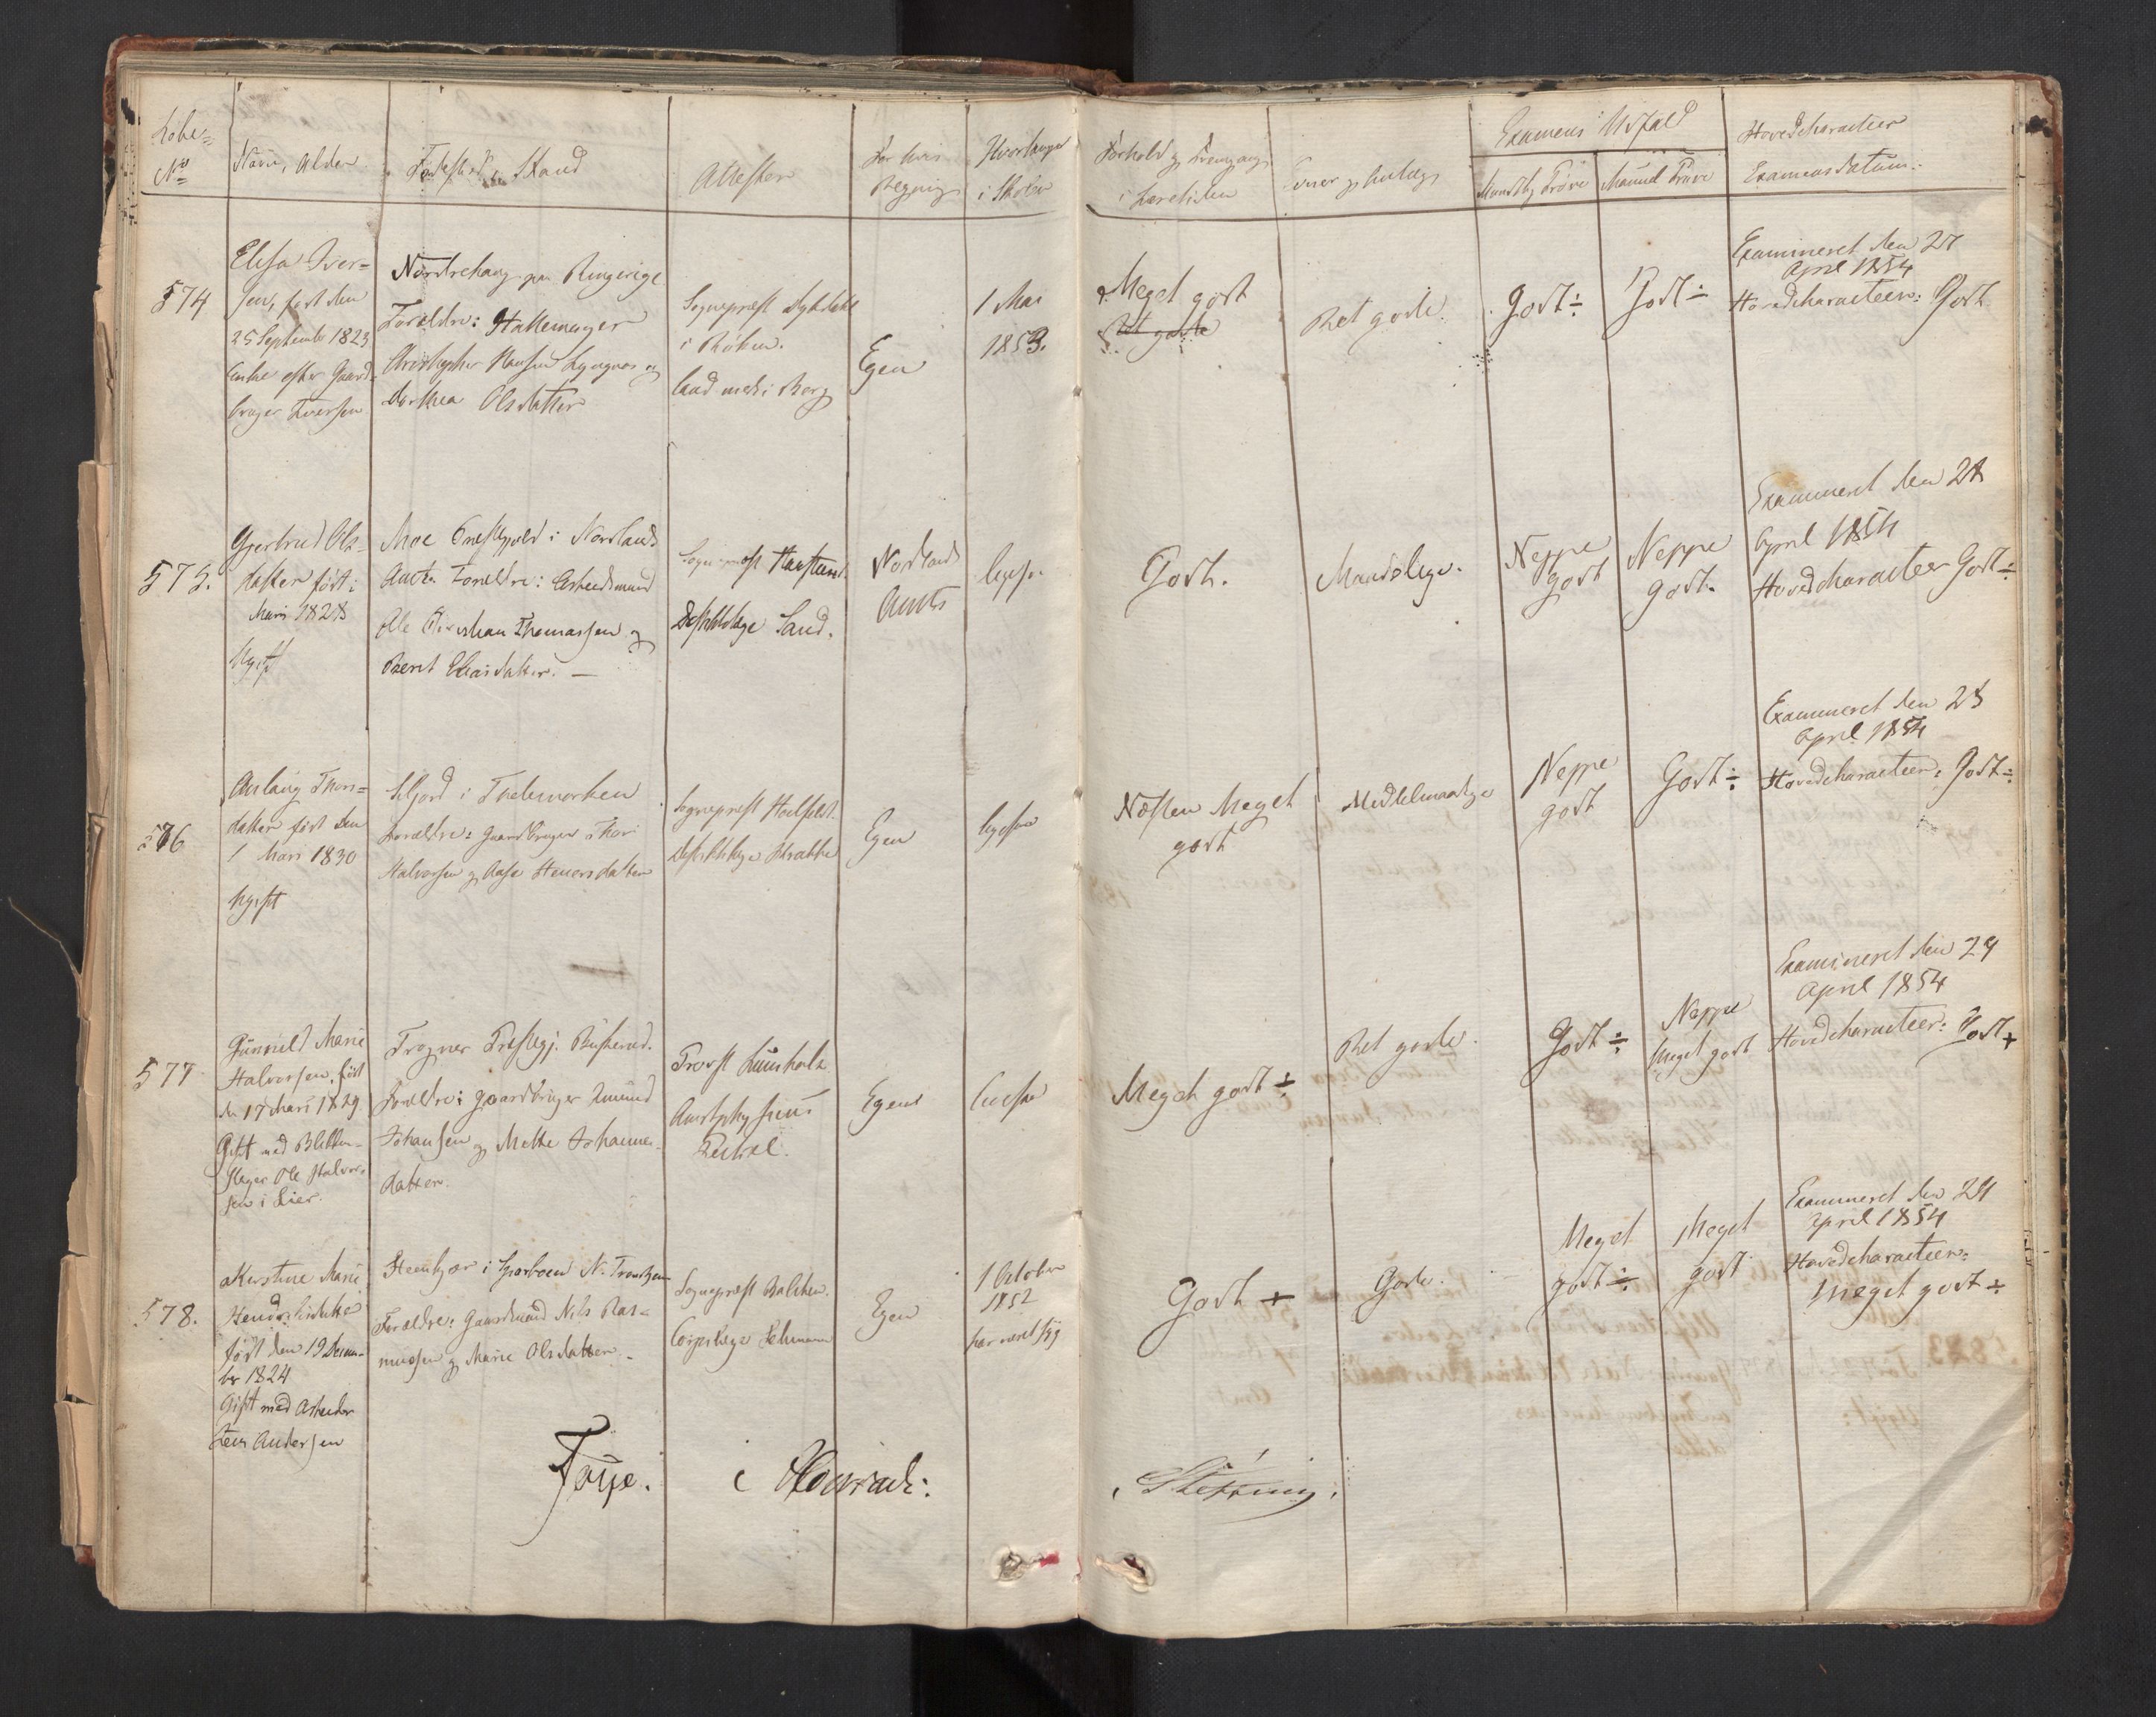 Løbe=
No
Navn, Alder
Fødested, Stand
Attester
For hvis
Regning
Hvorlænge
i Skolen
Forhold og Fremgang
i Læretiden
Evner og
Examens Udfald
Mundtlig Prøve
Manuel Prøve
Hovedcharacteer
Examensdatum.
574
Elisa Iver=
sen, født den
25 September 1823
Enke efter Gaard=
bruger Iversen
Norderhaug paa Ringerige
Forældre:
Christopher Hansen
Dorthea Olsdatter
Sognepræst
i Røken.
Egen
1 Mai
1853.
Meget godt
Ret gode
Ret gode.
Godt ÷
Godt ÷
Examineret den 27
April 1854
Hovedcharacteer: Godt
575.
Gjertrud Ols=
datter født i
Mars 1828
Ugift
Moe Præstegjeld i Nordlands
Amt. Forældre: Arbeidsmand
Ole Christian Thomassen og
Beret Eliasdatter. —
Sognepræst
Distriktslæge Land.
Nordlands
Amts
ligesaa
Godt.
Maadelige.
Neppe
godt
Neppe
godt.
Examineret den 28
April 1854
Hovedcharacteer Godt ÷
576
Anlaug Thors=
datter født den
1 Mars 1830
Ugift
Siljord i Thelemarken
Forældre: Gaardbruger Thor
Halvorsen og Aase
Sognepræst
Distriktslæge
Egen
ligesaa
Næsten Meget
godt
Middelmaadige
Neppe
godt
Godt ÷
Examineret den 28
April 1854
Hovedcharacteer: Godt ÷
577
Gunnild Marie
Halvorsen, født
den 17 Mars 1829
Gift med Blikken=
slager Ole Halvor=
sen i Lier.
Præstegj. Buskerud.
Forældre: Gaardbruger Amund
Johansen og Mette Johannes=
datter.
Provst Lumholtz
Amtsphysicus
Egen
ligesaa
Meget godt ÷
Ret gode.
Godt ÷
Neppe
Meget godt
Examineret den 29
April 1854
Hovedcharacteer: Godt +
578.
Kirstine Marie
født den 19 Decem=
ber 1824
Gift med Arbeider
Jens Andersen
Steenkjær i Sparboen N. Trondhjem
Forældre: Gaardmand Nils Ras=
mussen og Marie Olsdatter. -
Sognepræst Balchen.
Corpslæge
Egen
1 October
1852
har været syg
Godt +
Gode.
Meget
godt ÷
Meget
godt
Examineret den 29
April 1854
Hovedcharacteer:
Meget godt ÷
Faye.
Conradi:
Steffens.